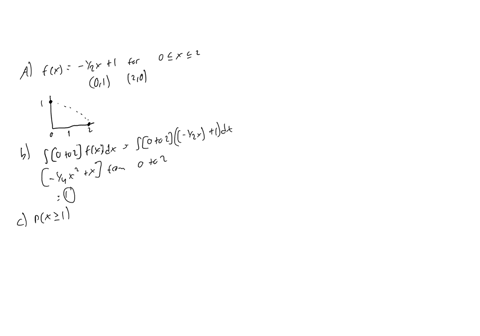 A) f(x) = -1/2x + 1 for 0 ≤ x ≤ 2
(0,1) (2,0)
1
0 1 2
b) ∫[0 to 2] f(x)dx = ∫[0 to 2]((-1/2x) + 1)dx
[-1/4x² + x] from 0 to 2
= 1
c) P(x ≥ 1)